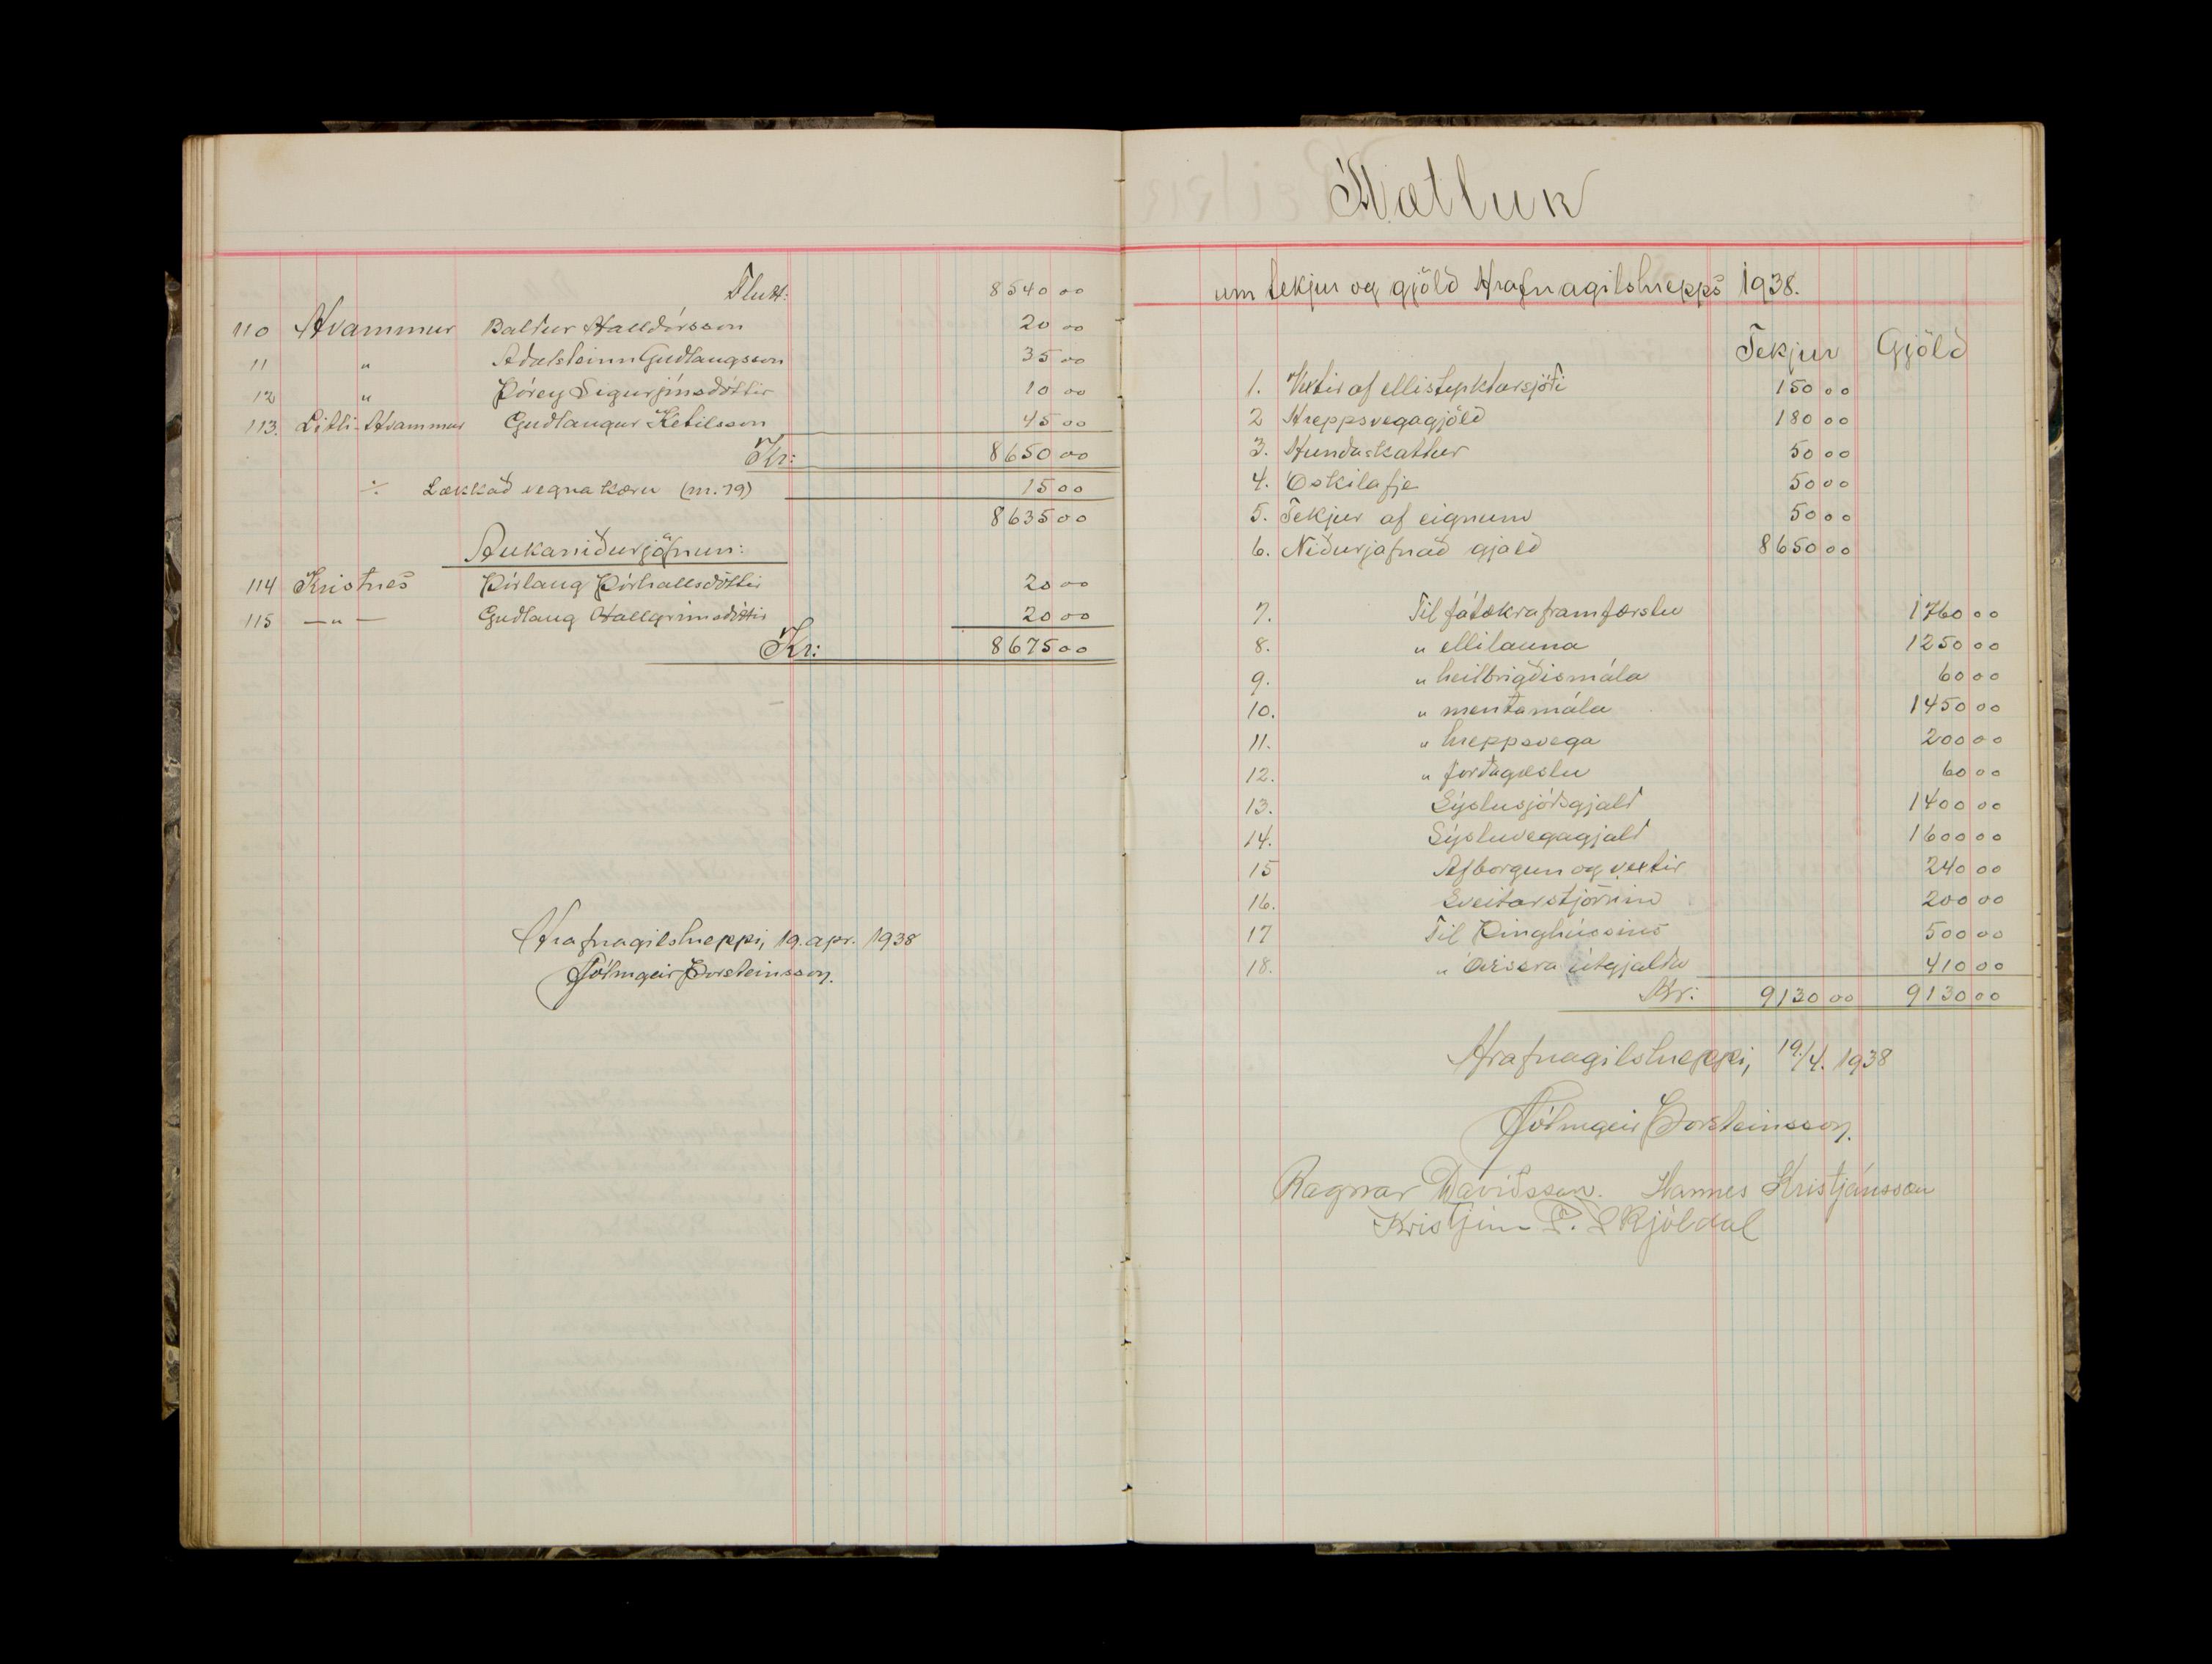 Flutt: 8540 00
110 Hvammur Baldur Halldórsson 20 00
11 " Aðalsteinn Guðlaugsson 35 00
12 " Þórey Sigurjónsdóttir 10 00
113. Litli-Hvammur Guðlaugur Ketilsson 45 00
Kr: 8650 00
÷ Lækkað vegna kæru (nr. 79) 15 00
8635 00
Aukaniðurjöfnun:
114 Kristnes Þórlaug Þórhallsdóttir 20 00
115 — " — Guðlaug Hallgrímsdóttir 20 00
Kr: 8675 00
Hrafnagilshreppi, 19. apr. 1938
Hólmgeir Þorsteinsson.
Áætlun
um tekjur og gjöld Hrafnagilshrepps 1938.
Tekjur Gjöld
1. Vextir af ellistyrktarsjóði 150 00
2 Hreppsvegagjöld 180 00
3. Hundaskattur 50 00
4. Óskilafje 50 00
5. Tekjur af eignum 50 00
6. Niðurjafnað gjald 8650 00
7. Til fátækraframfærslu 1760 00
8. " ellilauna 1250 00
9. " heilbrigðismála 60 00
10. " mentamála 1450 00
11. " hreppsvega 200 00
12. " forðagæslu 60 00
13. Sýslusjóðsgjald 1400 00
14. Sýsluvegagjald 1600 00
15 Afborgun og vextir 240 00
16. Sveitarstjórnin 200 00
17 Til Þinghússins 500 00
18. " Ýmissra útgjalda 410 00
Kr: 9130 00 9130 00
Hrafnagilshreppi, 19./4. 1938
Hólmgeir Þorsteinsson.
Ragnar Davíðsson. Hannes Kristjánsson
Kristján P. Skjóldal